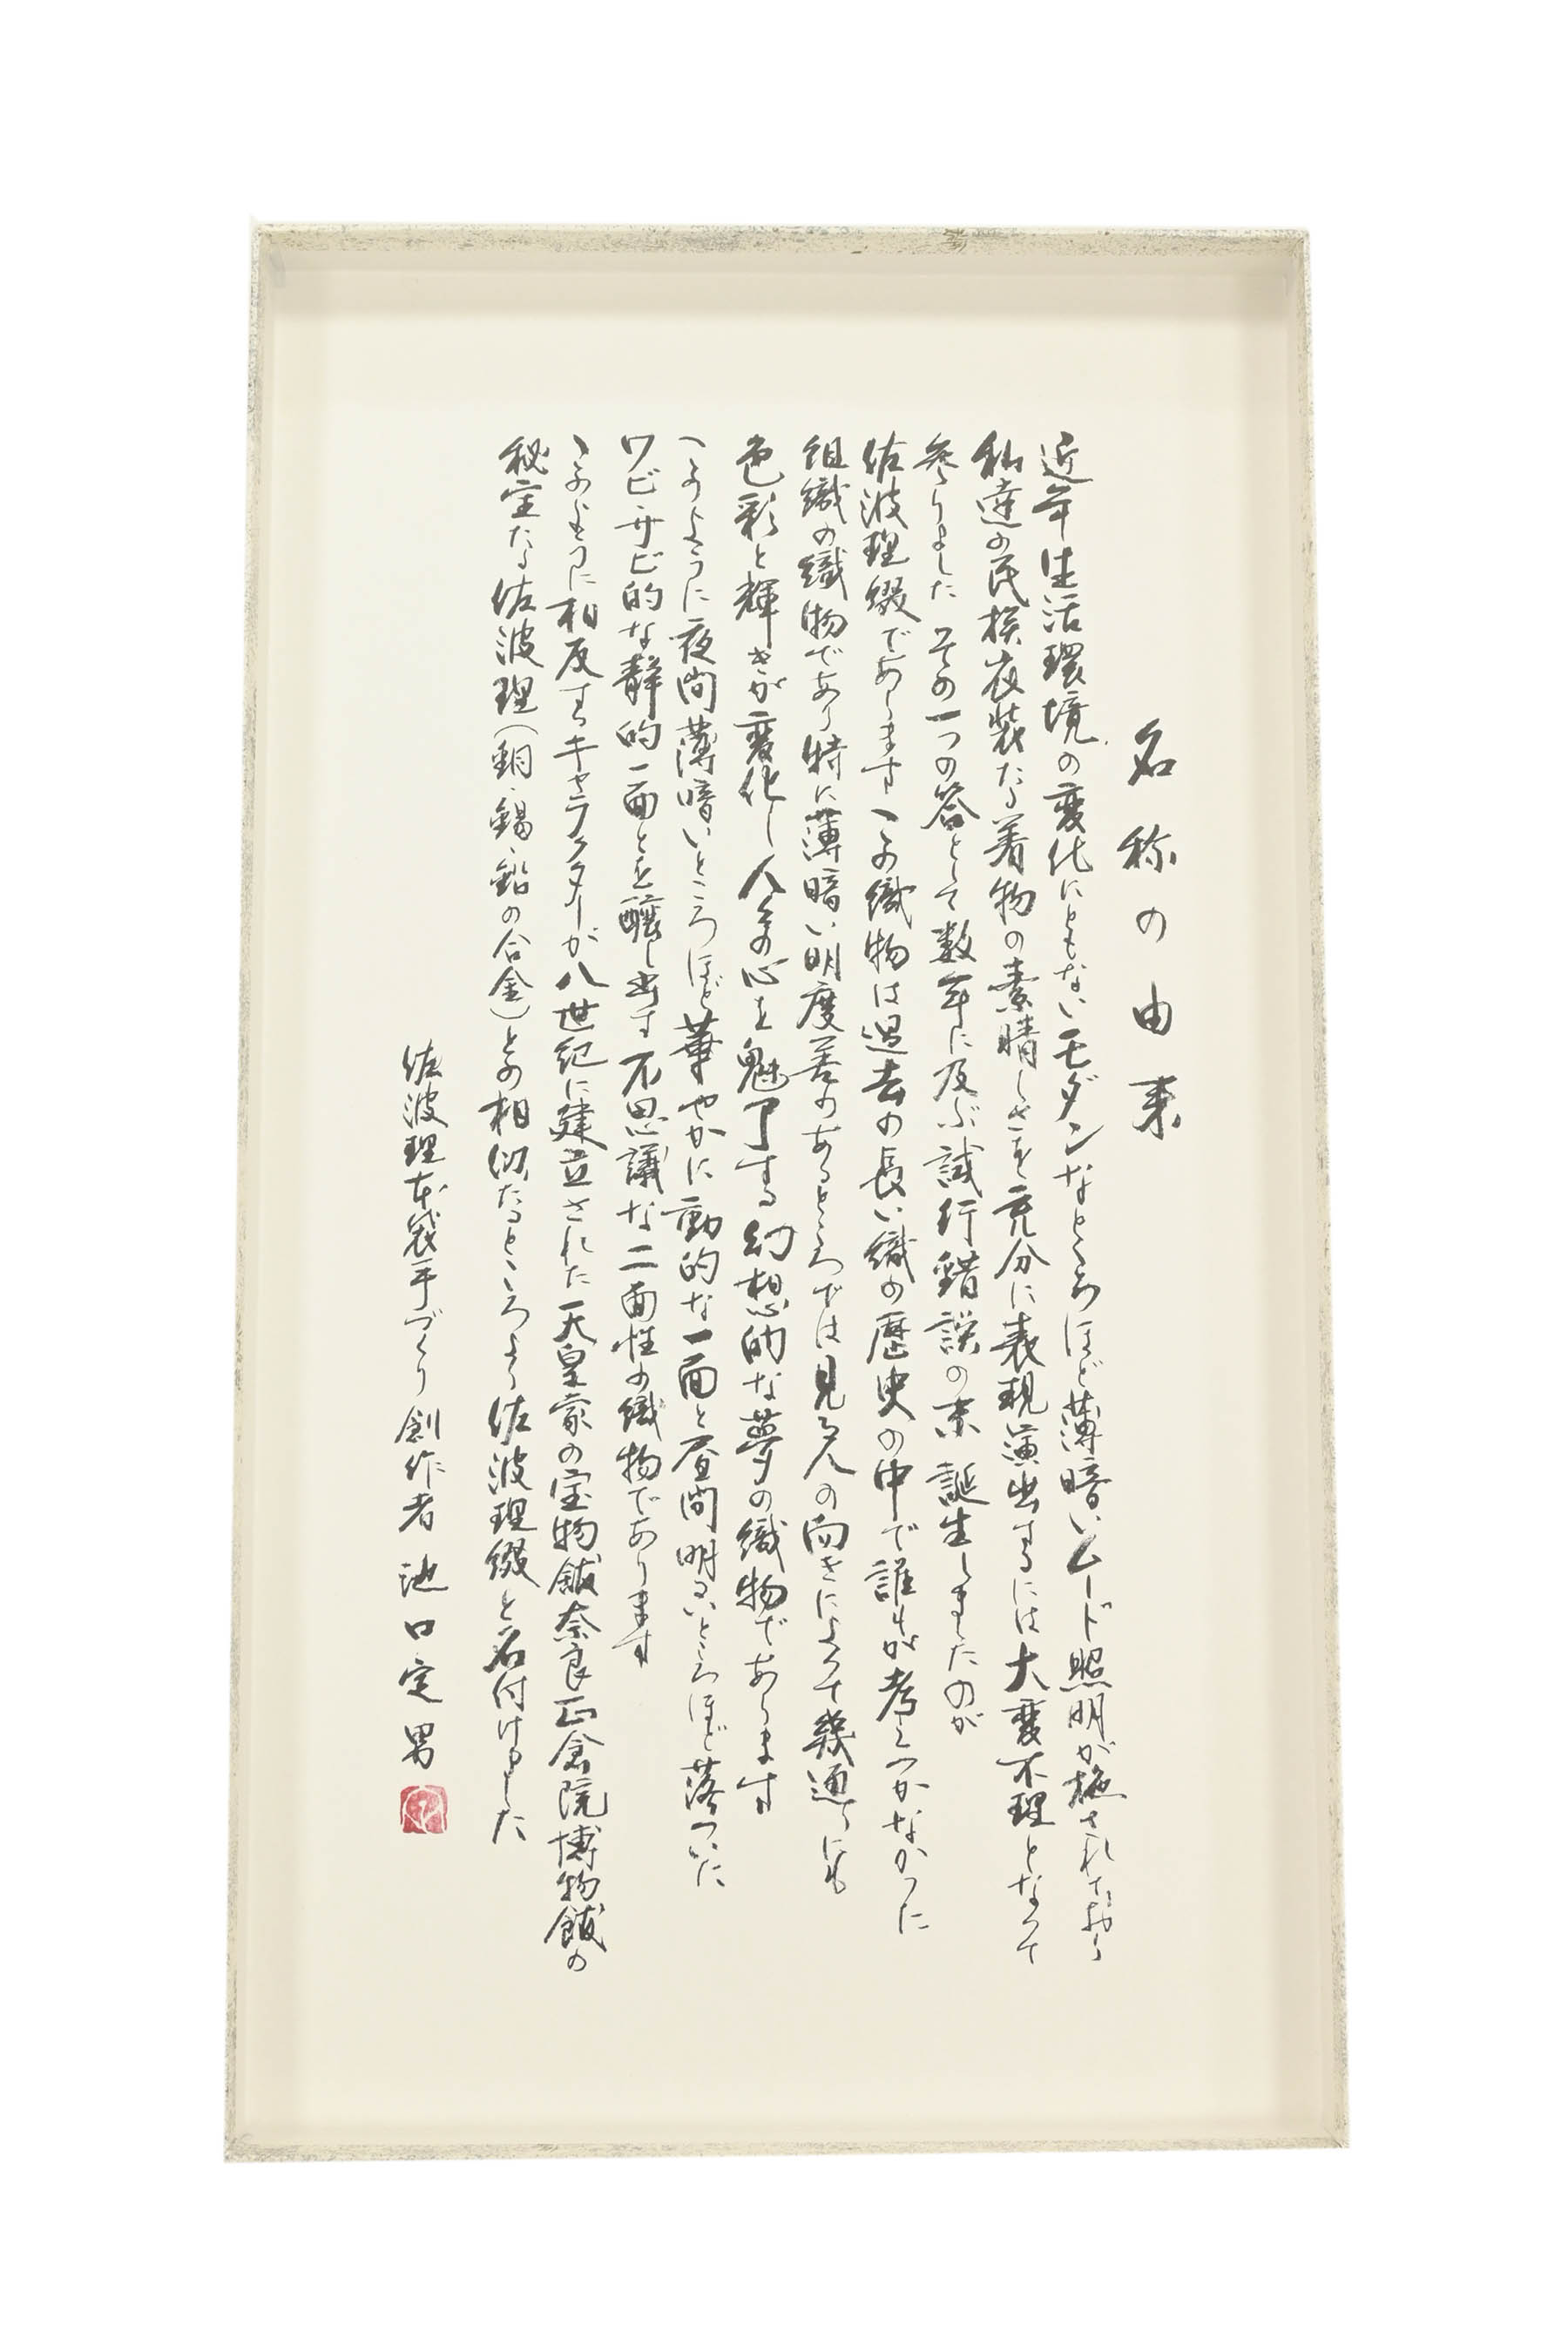 名称の由来
近年生活環境の変化にともないモダンなところほど薄暗いムード照明が施されており
私達の民族衣装たる着物の素晴しさを充分に表現演出するには大変不理となって
参りました その一つの答として数年に及ぶ試行錯誤の末 誕生しましたのが
佐波理綴であります この織物は過去の長い織の歴史の中で誰もが考えつかなかった
組織の織物であり特に薄暗い明度差のあるところでは見る人の向きによって幾通りにも
色彩と輝きが変化し人々の心を魅了する幻想的な夢の織物であります
このように夜間薄暗いところほど華やかに動的な一面と昼間明るいところほど落ついた
ワビサビ的な静的一面とを醸し出す不思議な二面性の織物であります
このように相反するキャラクターが八世紀に建立された天皇家の宝物館奈良正倉院博物館の
秘宝たる佐波理(銅・錫・鉛の合金)との相似たるところより佐波理綴と名付けました
佐波理本袋手づくり創作者 池口定男